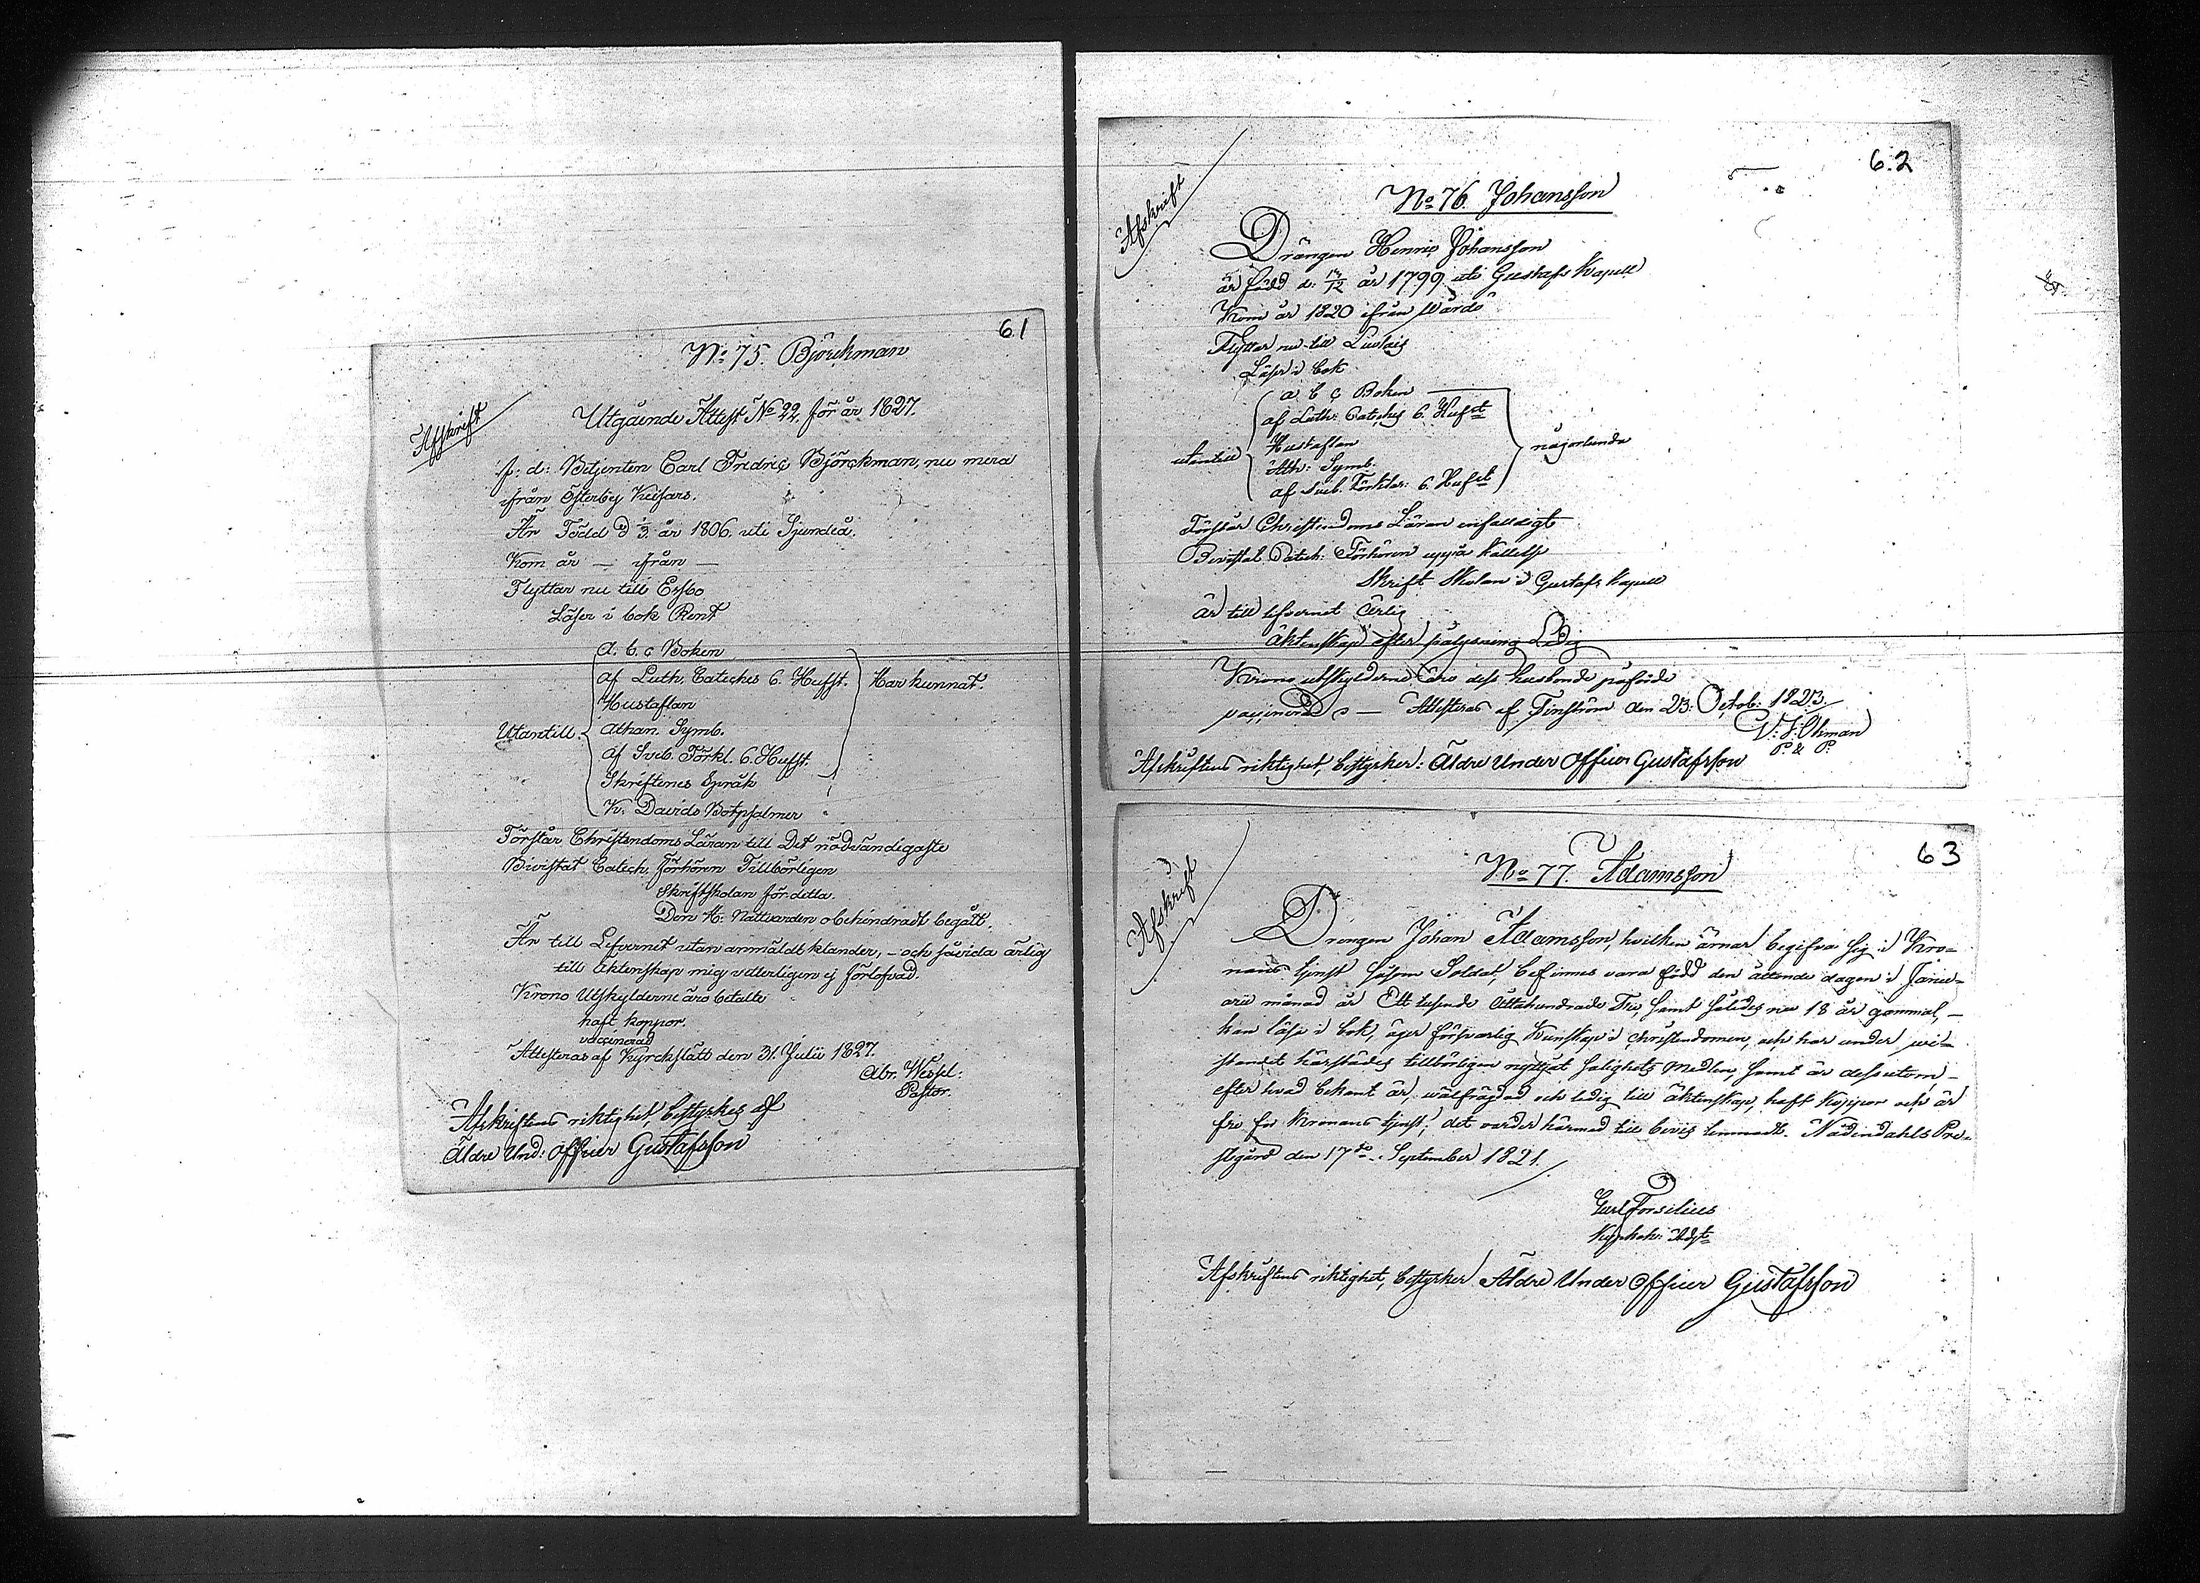 61
No 75. Björckman
Afskrift
Utgående Attest No 22. för år 1827.
f: d: Betjenten Carl Fredric Björckman, nu mera
ifrån Österby Kuifars.
Är Född d 1/3 år 1806. uti Sjundeå.
Kom år — ifrån —
Flyttar nu till Esbo
Läser i bok Rent
A. b. c Boken
af Luth. Cateches 6. Hufst.
Har kunnat.
Hustaflan
Utantill.
Athan. Symb.
af Sveb. Förkl. 6. Hufst.
Skriftenes Språk
K. Davids Botpsalmer
Förstår Christendoms Läran till Det nödvändigaste
Bivistat Catech. Förhören Tillbörligen
Skriftskolan för detta.
Den H. Nattvarden obehindradt begått.
Är till Lefvernet utan anmäldt klander, – och såvida ärlig
till äktenskap mig veterligen ej förlofvad.
Krono Utskylderne äro betalte
haft koppor.
vaccinerad
Attesteras af Kyrckslätt den 31. Julii 1827.
Abr. Wessel:
Pastor.
Afskriftens riktighet, bestyrkes af
Äldre Und: Officer Gustafsson
62
Afskrift
No 76. Johansson
Drängen Henric Johansson
är född d. år 1799. uti Gustafs Kapell
Kom år 1820 ifrån Wårdö
Flyttar nu till
Läser i bok
a b c Boken
af Luth: Cateches 6. Hufst
utantill
Hustaflan
någorlunda
Ath: Symb.
af Sveb. Förklar: 6. Hufst
Förstår Christendoms Läran enfaldigt
Bivistat Catech: Förhören uppå kallelse
Skrift Skolan i Gustafs Kapell
är till lefvernet Ärlig
äktenskap efter pålysning Ledig
Krono utskylderne äro dess husbonde påförde
vaccinerad — Attesteras af Finström den 23. Octob: 1823.
Öhman
P. & P.
Afskriftens riktighet, bestyrker: Äldre Under Officer Gustafsson
63
Afskrift
No 77. Adamsson
Drengen Johan Adamsson, hvilken ärnar begifva sig i Kro-
nans tjenst såsom Soldat, befinnes vara född den åttonde dagen i Janu-
arii månad år Ett tusende Åttahundrade Tre, samt således nu 18 år gammal, –
han läser i bok, äger försvarlig kunskap i christendomen, och har under wi-
standet härstädes tillbörligen nyttjat salighets Medlen, samt är dessutom –
efter hvad bekant är, wälfrägdad och ledig till äktenskap, haft koppor och är
fri för Kronans tjenst; det varder härmed till bevis lemnadt. Nådendahls Pre-
stgård den 17de September 1821.
Carl Forselius
Kyrkoh: Adjt
Afskriftens riktighet, bestyrker Äldre Under Officer Gustafsson